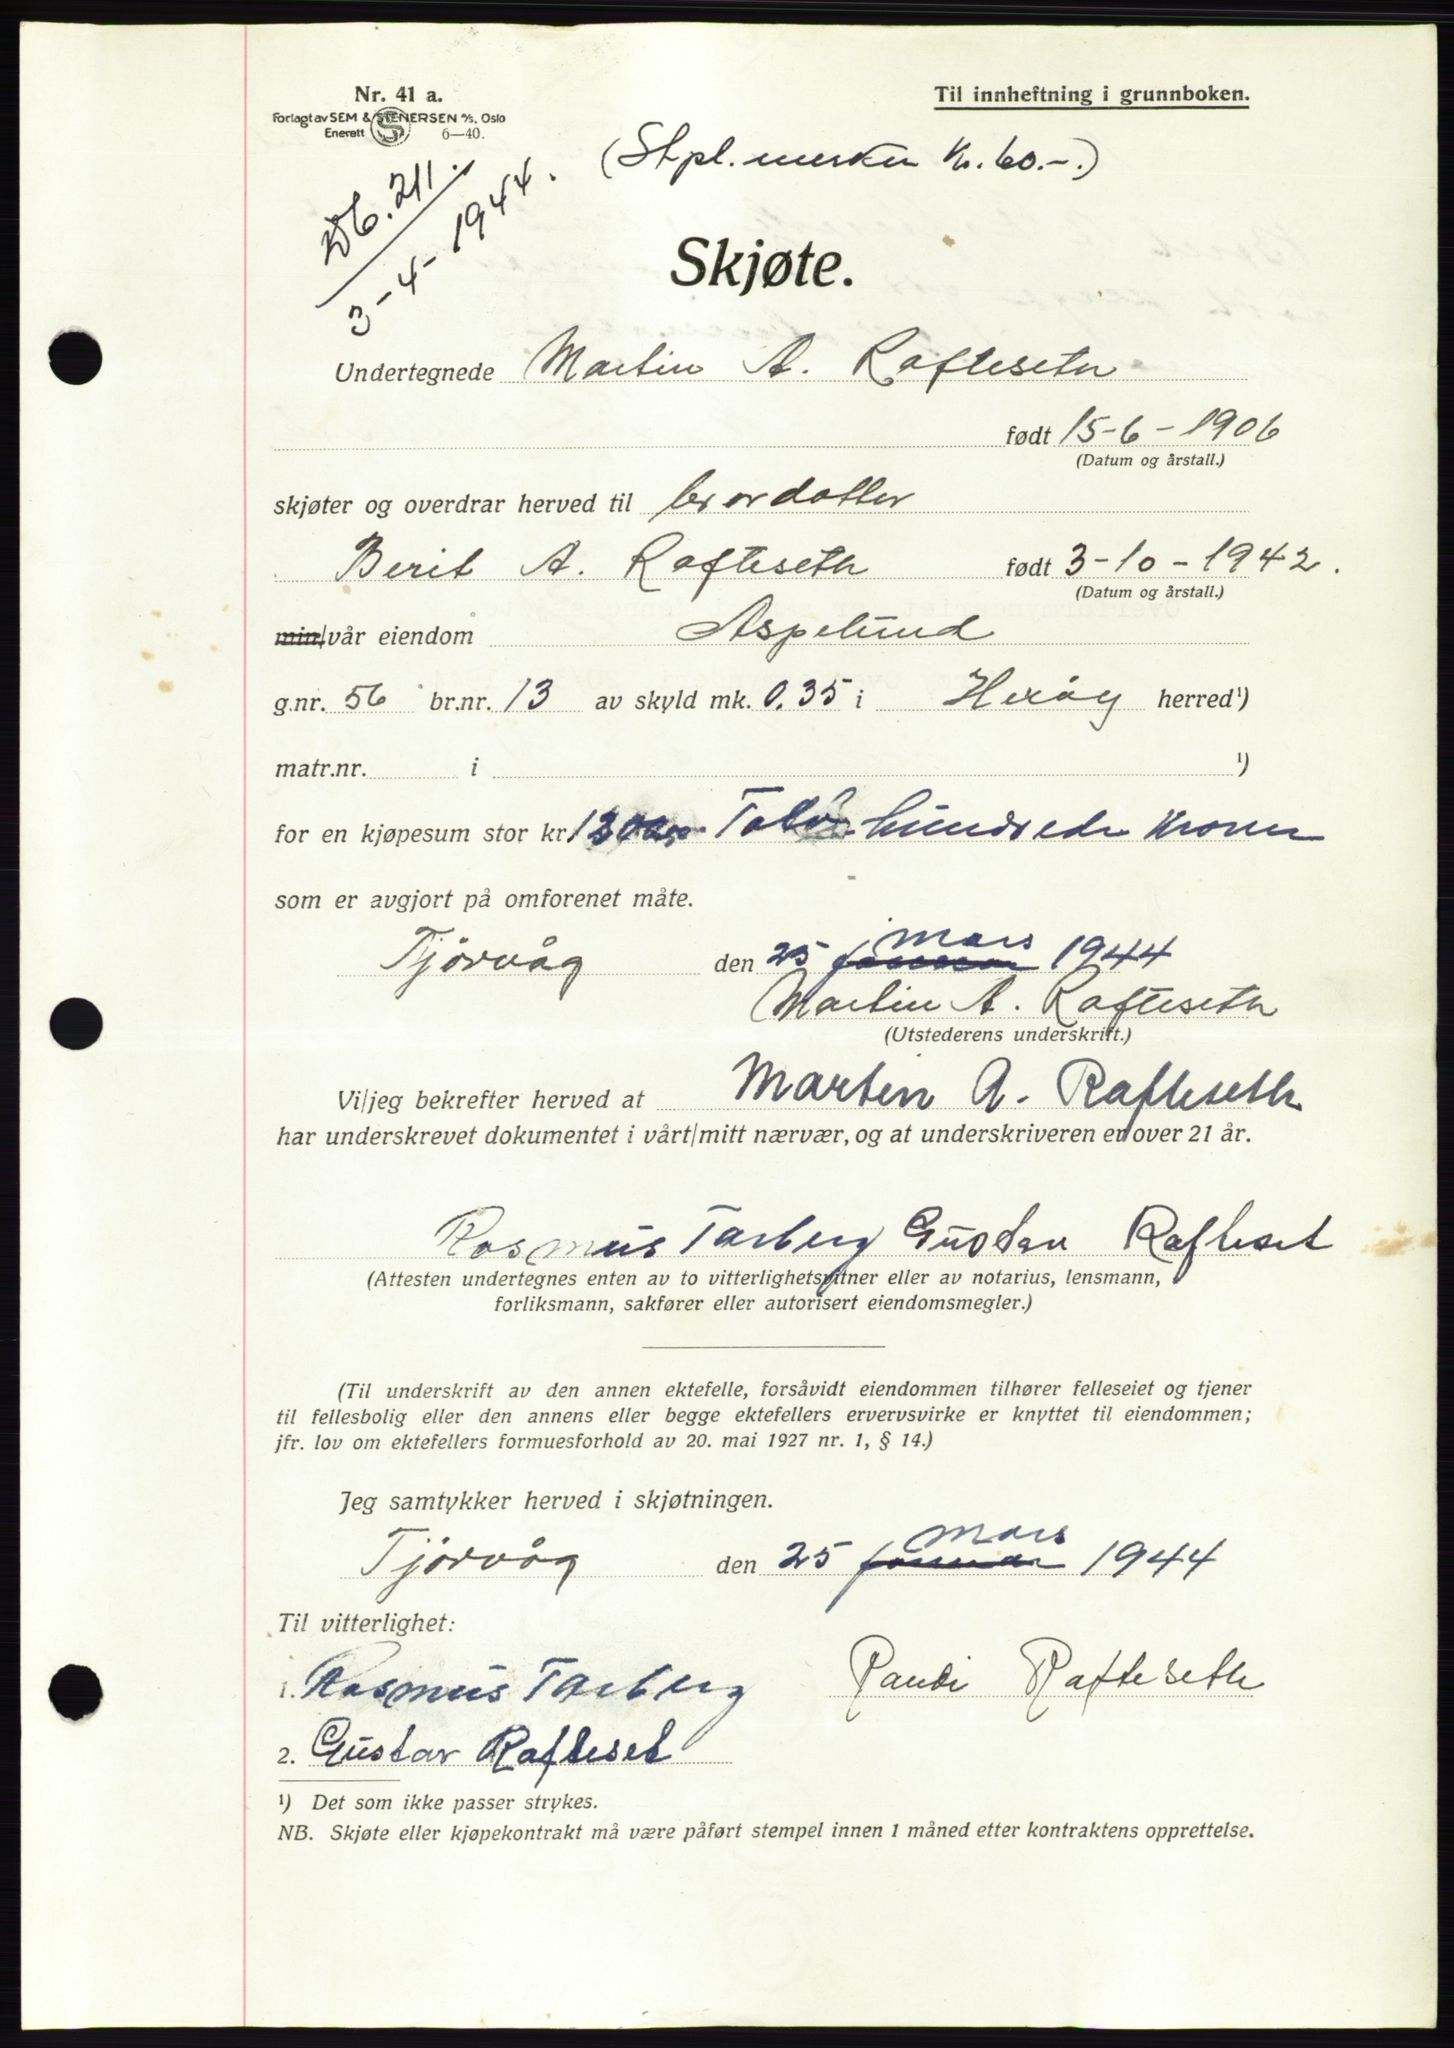 Nr. 41 a.
Forlagt av SEM & STENERSEN A/S, Oslo
Enerett S 6—40.
Til innheftning i grunnboken.
(Stpl. merker Kr. 60.-.)
Db. 211.
3-4-1944.
Skjøte.
Undertegnede Martin A. Rafteseth
født 15-6-1906
(Datum og årstall.)
skjøter og overdrar herved til brordatter
Berit A. Rafteseth født 3-10-1942.
(Datum og årstall.)
min/vår eiendom Aspelund
g.nr. 56 br.nr. 13 av skyld mk. 0.35 i Herøy herred¹)
matr.nr. i ¹)
for en kjøpesum stor kr. hundrede Kroner
som er avgjort på omforenet måte.
Tjørvåg den 25 januar mars 1944
Martin A. Rafteseth
(Utstederens underskrift.)
Vi/jeg bekrefter herved at Martin A. Rafteseth
har underskrevet dokumentet i vårt/mitt nærvær, og at underskriveren er over 21 år.
Rasmus Tarberg Gustav Rafteset
(Attesten undertegnes enten av to vitterlighetsvitner eller av notarius, lensmann,
forliksmann, sakfører eller autorisert eiendomsmegler.)
(Til underskrift av den annen ektefelle, forsåvidt eiendommen tilhører felleseiet og tjener
til fellesbolig eller den annens eller begge ektefellers ervervsvirke er knyttet til eiendommen;
jfr. lov om ektefellers formuesforhold av 20. mai 1927 nr. 1, § 14.)
Jeg samtykker herved i skjøtningen.
Tjørvåg den 25 januar mars 1944
Til vitterlighet:
1. Rasmus Tarberg Randi Rafteseth
2. Gustav Rafteset
¹) Det som ikke passer strykes.
NB. Skjøte eller kjøpekontrakt må være påført stempel innen 1 måned etter kontraktens opprettelse.